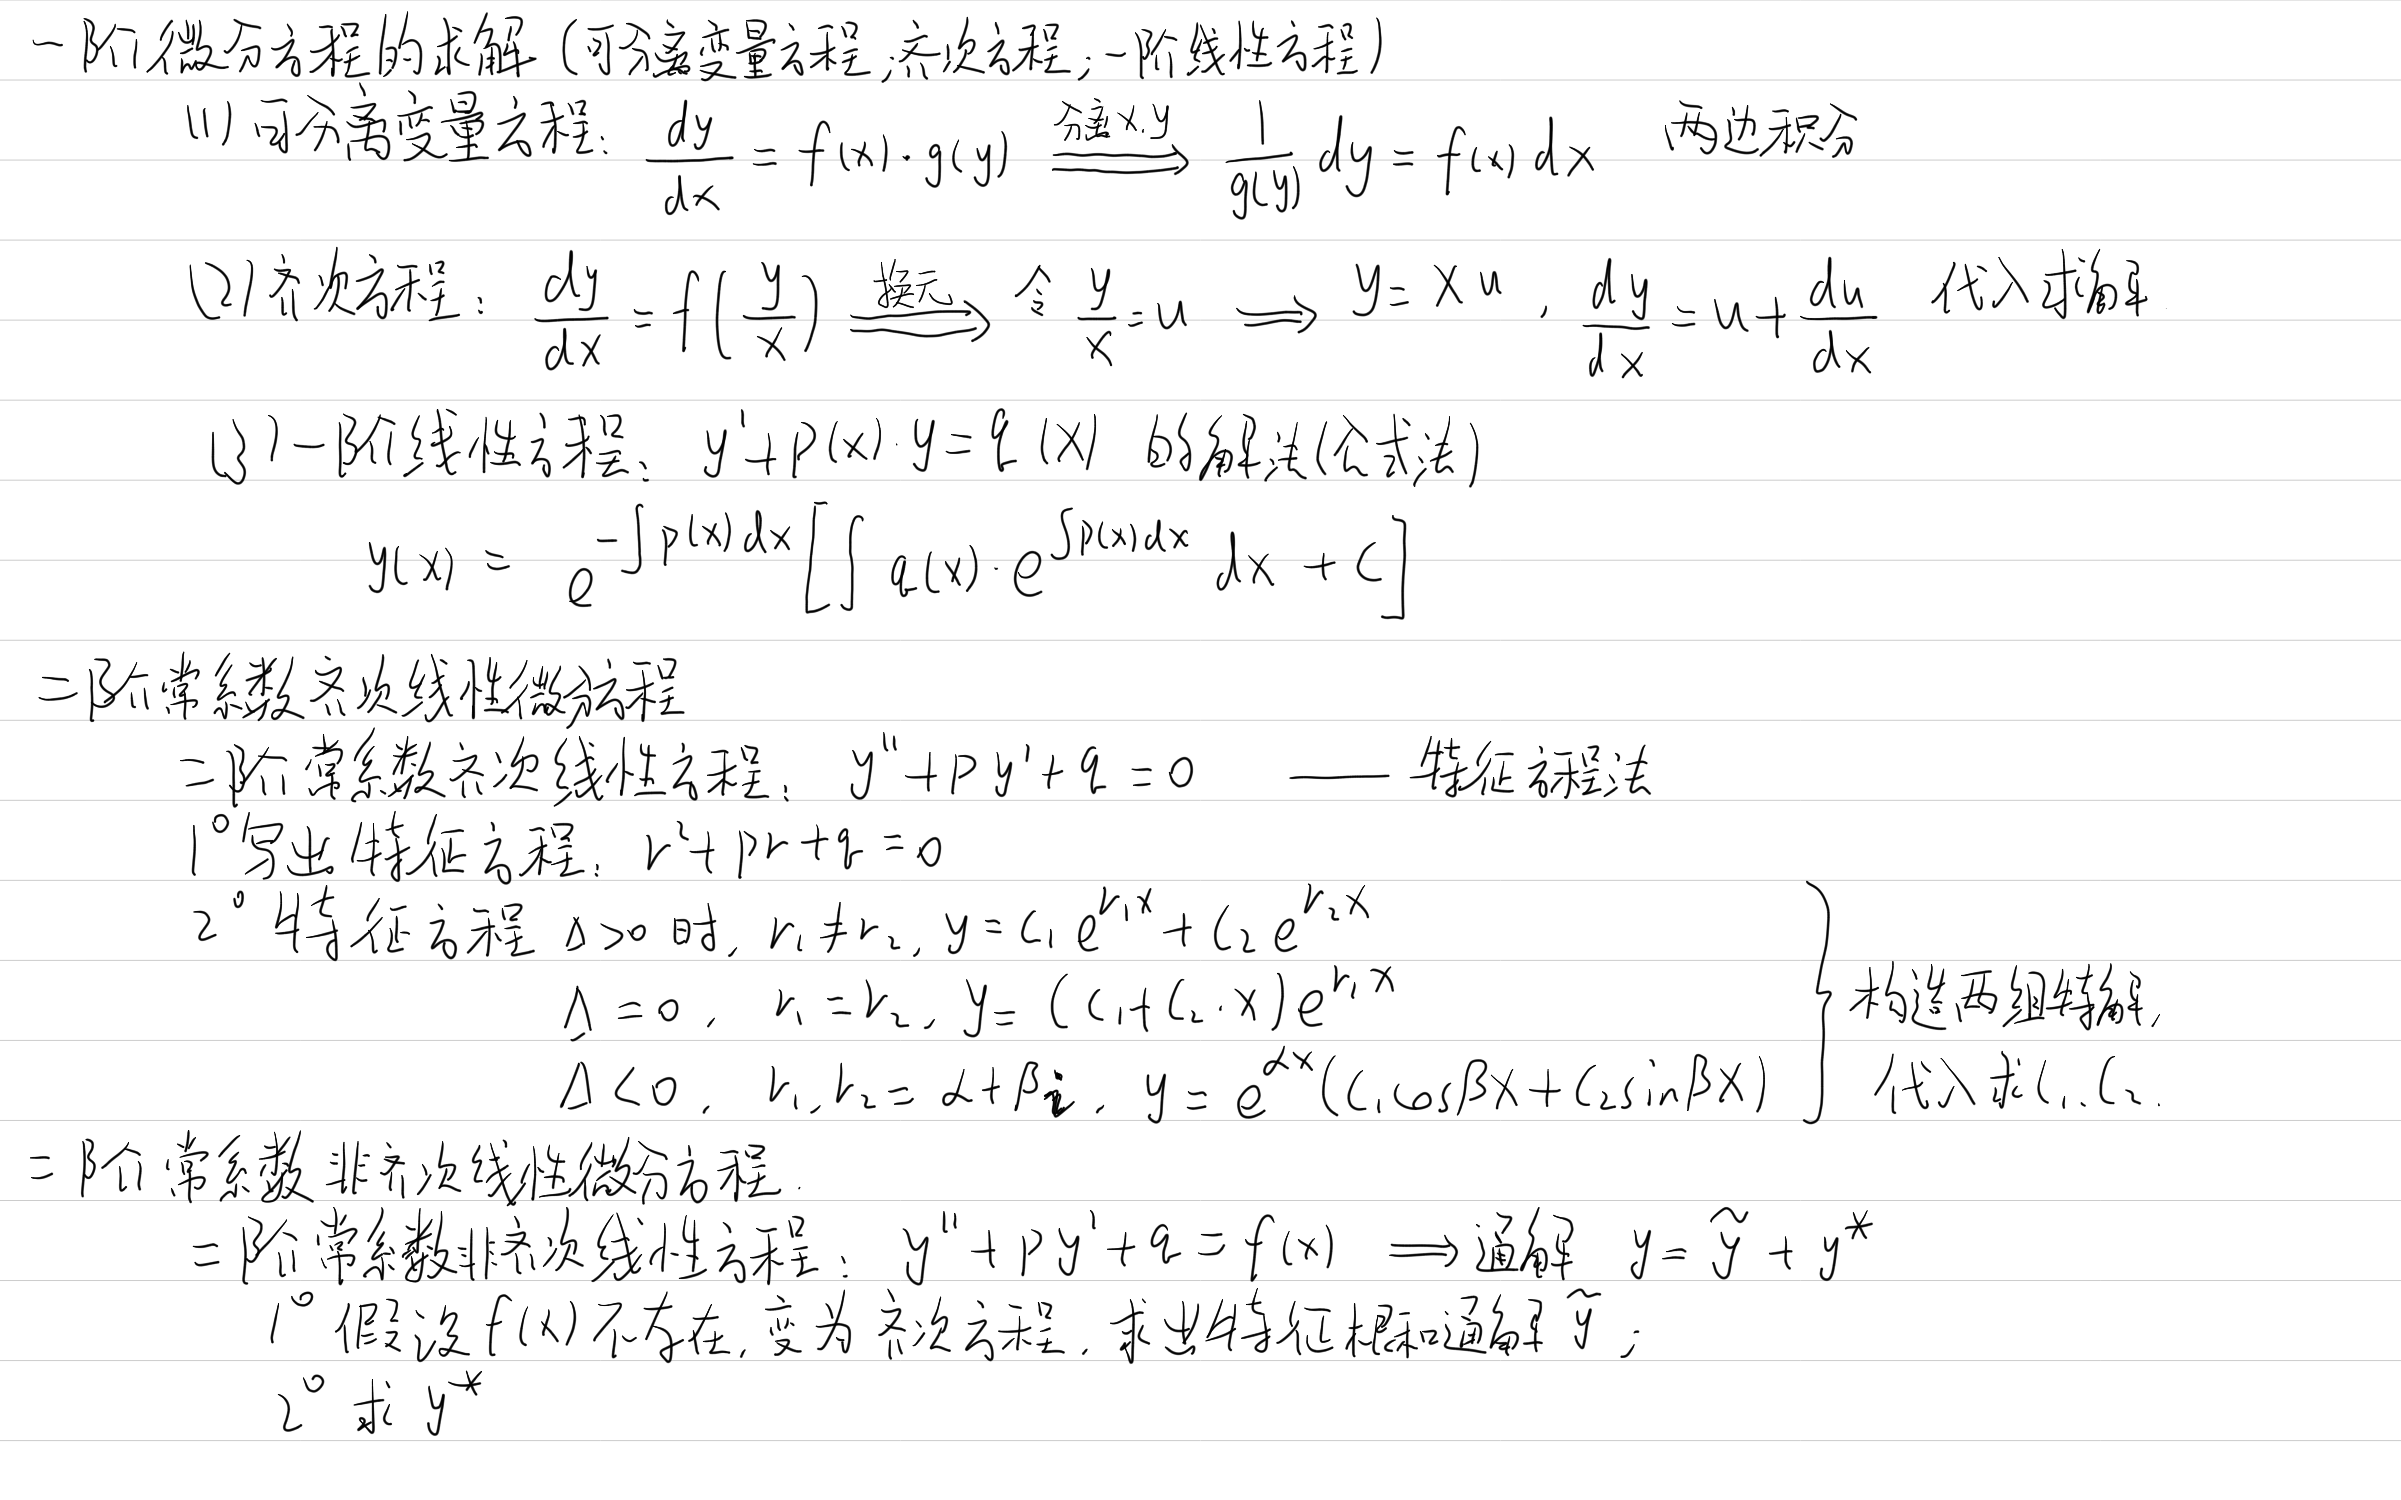 一阶微分方程的求解(可分离变量方程;齐次方程;一阶线性方程)
(1)可分离变量方程: dy/dx = f(x)·g(y) ⟹(分离x.y) 1/g(y) dy = f(x) dx 两边积分
(2)齐次方程: dy/dx = f(y/x) ⟹(换元) 令 y/x = u ⟹ y = xu , dy/dx = u + du/dx 代入求解.
(3)一阶线性方程: y' + p(x)·y = q(x) 的解法(公式法)
y(x) = e^{-∫p(x)dx} [∫ q(x)·e^{∫p(x)dx} dx + C]
二阶常系数齐次线性微分方程
二阶常系数齐次线性方程: y'' + py' + q = 0 —— 特征方程法
1° 写出特征方程: r² + pr + q = 0
2° 特征方程 Δ>0 时, r₁≠r₂, y = C₁e^{r₁x} + C₂e^{r₂x}
Δ = 0, r₁ = r₂, y = (C₁+C₂·x)e^{r₁x}
Δ < 0, r₁, r₂ = α+βi, y = e^{αx}(C₁cosβx + C₂sinβx)
构造两组特解,
代入求C₁.C₂.
二阶常系数非齐次线性微分方程.
二阶常系数非齐次线性方程: y'' + py' + q = f(x) ⟹ 通解 y = ỹ + y*
1° 假设f(x)不存在,变为齐次方程,求出特征根和通解ỹ;
2° 求 y*